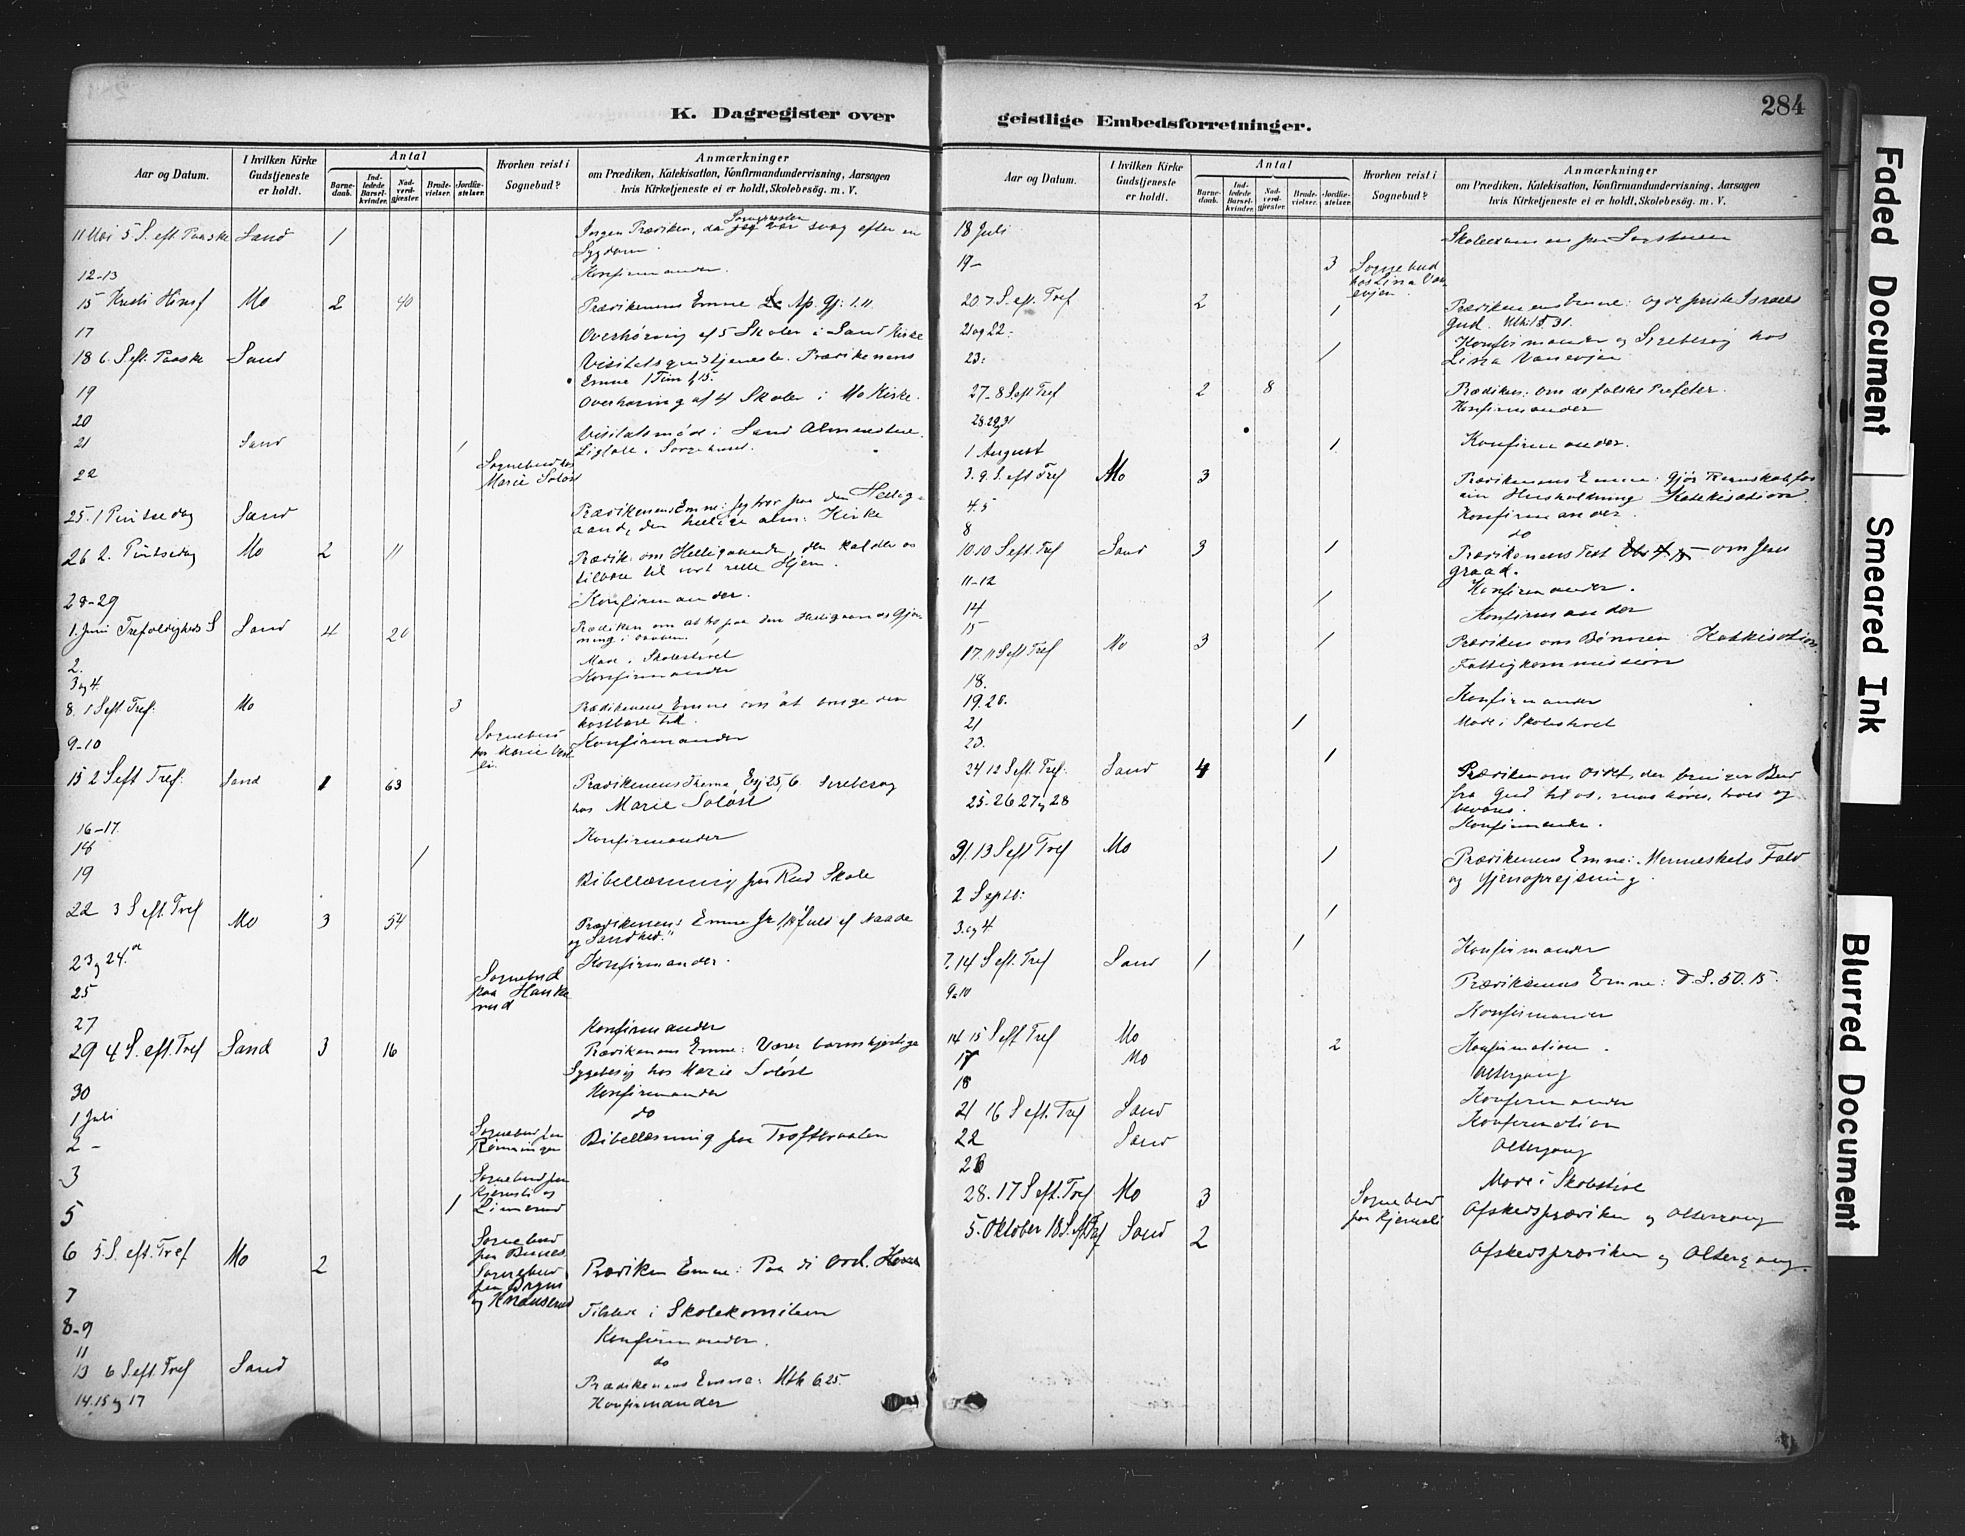 K. Dagregister over
Aar og Datum.
I hvilken Kirke Gudstjeneste er holdt.
Antal
Barnedaab.
Indledede Barselkvinder.
Nadverdgjæster.
Brudevielser.
Jordfæstelser.
Hvorhen reist i Sognebud?
Anmærkninger
om Prædiken, Katekisation, Konfirmandundervisning, Aarsagen
hvis Kirketjeneste ei er holdt, Skolebesøg. m. V.
11 Mai 5 S. eft. Paaske Sand 1 Ingen Prædiken, da jeg var svag efter en
Sygdom.
12-13 Konfirmander.
15 Kristi Himf Mo 2 40 Prædikenens Emne Ap. Gj. 1.11
17 Overhøring af 5 Skoler i Sand Kirke
18 6. S eft Paaske Sand Visitatsgudstjeneste. Prædikenens
Emne 1 Tim 1,15.
19 Overhøring af 4 Skoler i Mo Kirke.
20 Visitatsmøde i Sand
21 Sand 1 Ligtale i Sørgehuset.
22 Sognebud hos
Marie Soløst
25. 1 Pintsedag Sand Prædikenens Emne: Jeg tror paa den Hellig-
aand, den hellige alm: Kirke
26 2. Pintsedag Mo 2 11 Prædik. om Helligaanden, der kalder os
tilbage til vort rette Hjem.
28-29 Konfirmander.
1. Juni Trefoldigheds S Sand 4 20 Prædiken om at tro paa den Helligaands Gjer-
ning i Daaben.
2. Møde i Skolestyret
3 og 4. Konfirmander
8. 1 S eft. Tref. Mo 3 Prædikenens Emne om at
kostbare Tid.
9-10 Sognebud
hos Marie
Konfirmander
15 2 S eft Tref. Sand 1 63 Prædikenens Thema, Esj 25,6. Sygebesøg
hos Marie Soløst
16-17. Konfirmander
18 1
19 Bibellæsning paa Rud Skole
22 3 S eft. Tref Mo 3 54 Prædikenens Emne Jh 1,14 "fuld af Naade
og Sandhed."
23 og 24. Konfirmander.
25 Sognebud
paa Hauke
rud
27 Konfirmander
29 4 S. eft. Tref Sand 3 16 Prædikenens Emne: Værer barmhjertige
Sygebesøg hos Marie Soløst
30 Konfirmander
1 Juli do
2 - Sognebud paa
Rønningen
Bibellæsning paa Troftbraaten
3 Sognebud paa
Kjernsli og
5 1 Linnerud
6 5 S. eft. Tref Mo 2 Sognebud
paa
Prædiken Emne: Paa dit Ord, Herre
7 Sognebud
paa
og Knauserud
Tilstede i Skolekomiteen
8-9 Konfirmander.
11 do
13 6 S. eft. Tref Sand Prædikenens Emne: Mth 6.25.
14.15 og 17 Konfirmander
geistlige Embedsforretninger.
284
Aar og Datum.
I hvilken Kirke Gudstjeneste er holdt.
Antal
Barnedaab.
Indledede Barselkvinder.
Nadverdgjæster.
Brudevielser.
Jordfæstelser.
Hvorhen reist i Sognebud?
Anmærkninger
om Prædiken, Katekisation, Konfirmandundervisning, Aarsagen
hvis Kirketjeneste ei er holdt, Skolebesøg. m. V.
18 Juli Skoleexamen paa
19- 3 Sognebud
hos Lina
20 7 S. eft. Tref 2 1 Prædikenens Emne: og de priste Israels
Gud. Mth. 15.31.
21 og 22. Konfirmander og Sygebesøg hos
23. 1 Lina
27- 8 S eft Tref 2 8 Prædiken: om de falske Profeter.
28 29 31 Konfirmander
1 August 1 Konfirmander.
3. 9. S. eft Tref Mo 3 Prædikenens Emne: Gjør Regnskab for
din Husholdning. Katekisation
4.5 Konfirmander.
8 do
10 10 S eft. Tref Sand 3 1 Prædikenens Text om Jesu
graad.
11-12 Konfirmander.
14 1 Konfirmander
15
17. 11 S eft Tref Mo 3 1 Prædiken om Bønnen Katekisation.
18. Fattigkommission
19.20. Konfirmander
21 1 Møde i Skolestyret
23.
24 12 S eft. Tref. Sand 4 1 Prædiken om Ordet, der bringer Bud
fra Gud til os, maa høres, troes og
bevares.
25. 26 27 og 28 Konfirmander.
31. 13 S eft Tref Mo 1 Prædikenens Emne: Menneskets Fald
og Gjenoprejsning.
2 Septbr: 1
3. og 4 1 Konfirmander
7. 14 S eft. Tref Sand 1 Prædikenens Emne: D. S. 50.15.
9. 10 Konfirmander
14 15 S eft Tref Mo 2 Konfirmation.
17 Mo Altergang
18 Konfirmander
21 16 S eft. Tref Sand Konfirmation
22 Sand Altergang
26 Møde i Skolestyre
28. 17 S eft. Tref Mo 3 Sognebud
paa Kjernsli
Afskedsprædiken og Altergang
5. Oktober 18 S. eft Tref Sand 2 Afskedsprædiken og Altergang.
Faded Document
Smeared Ink
Blurred Document